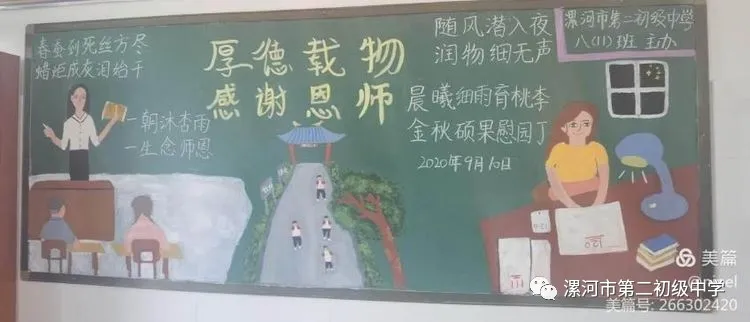 春蚕到死丝方尽
蜡炬成灰泪始干
一朝沐杏雨
一生念师恩
厚德载物
感谢恩师
随风潜入夜
润物细无声
晨曦细雨育桃李
金秋硕果慰园丁
2020年9月10日
漯河市第二初级中学
八(11)班 主办
120
美篇
漯河市第二初级中学
美篇号: 266302420